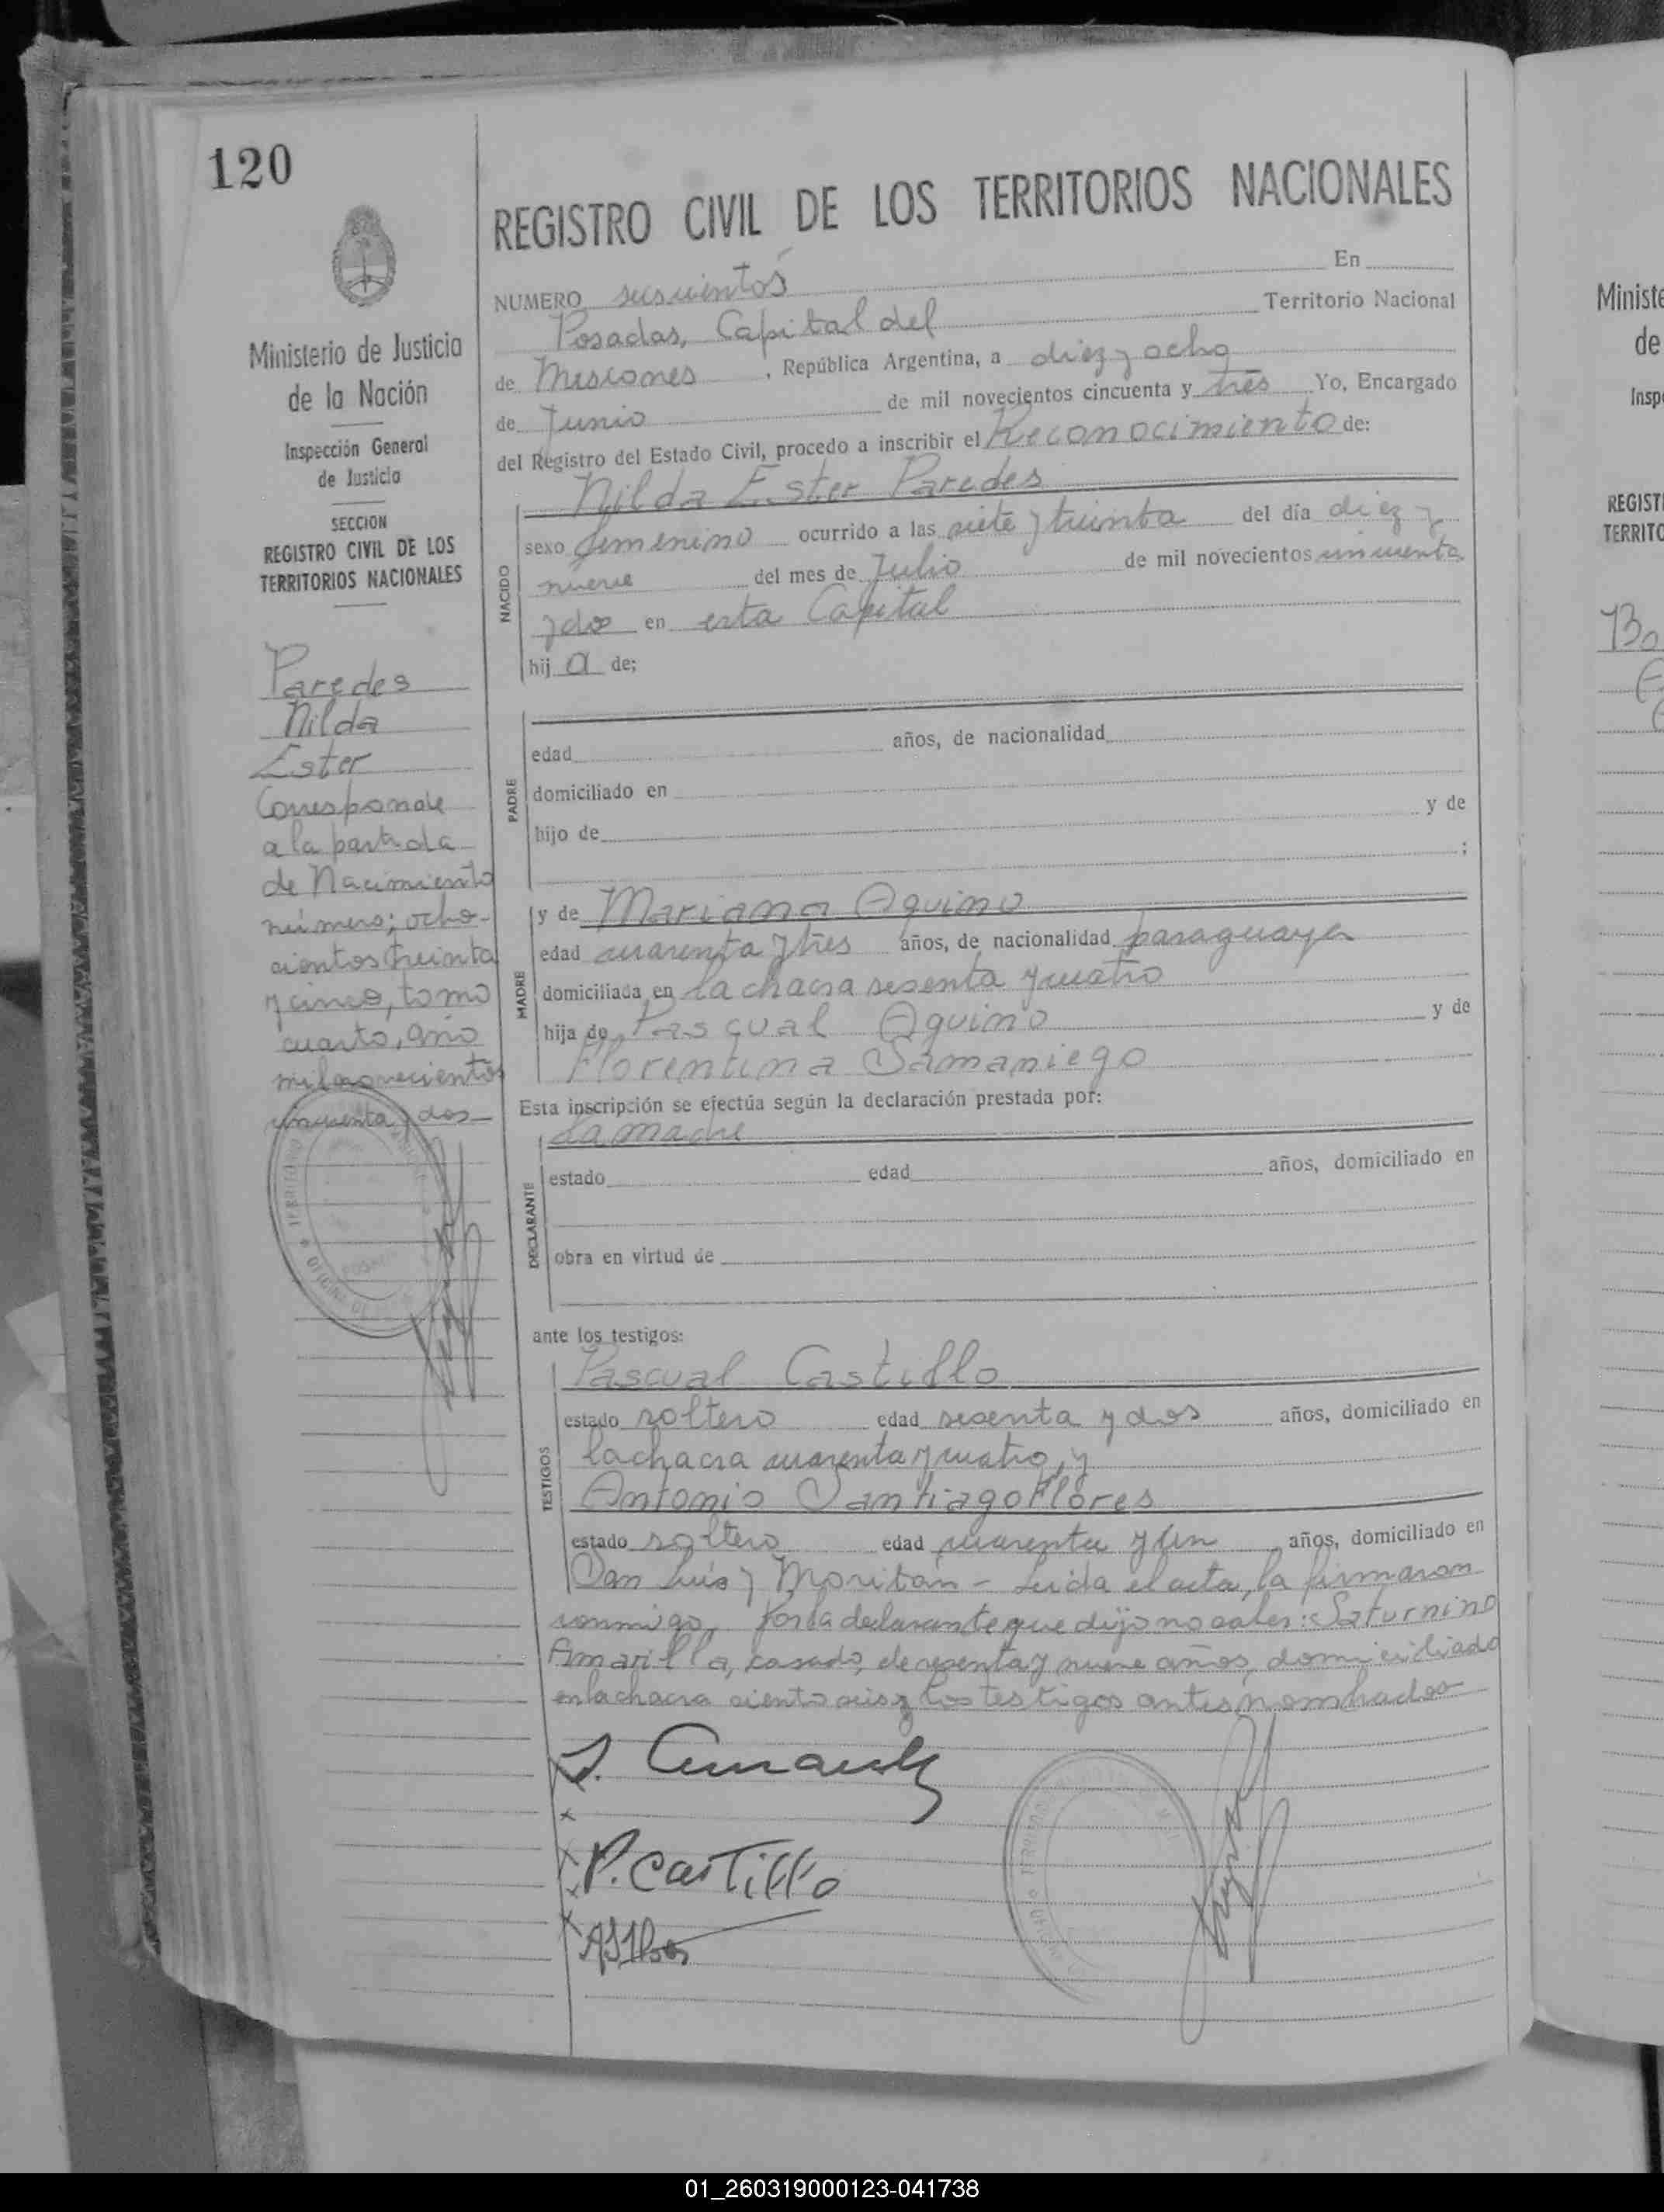 120
REGISTRO CIVIL DE LOS TERRITORIOS NACIONALES
Ministerio de Justicia
de la Nación
Inspección General
de Justicia
SECCION
REGISTRO CIVIL DE LOS
TERRITORIOS NACIONALES
Paredes
Nilda
Ester
Corresponde
a la partida
de Nacimiento
número; ocho-
cientos treinta
y cinco, tomo
cuarto, año
mil novecientos
cincuenta y dos
NUMERO seiscientos En
Posadas, Capital del Territorio Nacional
de Misiones, República Argentina, a diez y ocho
de Junio de mil novecientos cincuenta y tres Yo, Encargado
del Registro del Estado Civil, procedo a inscribir el Reconocimiento de:
Nilda Ester Paredes
NACIDO
sexo femenino ocurrido a las siete y treinta del día diez y
nueve del mes de Julio de mil novecientos cincuenta
y dos en esta Capital
hij a de;
PADRE
edad años, de nacionalidad
domiciliado en
hijo de y de
;
MADRE
y de Mariana Aquino
edad cuarenta y tres años, de nacionalidad paraguaya
domiciliada en la chacra sesenta y cuatro
hija de Pascual Aquino y de
Florentina Samaniego
Esta inscripción se efectúa según la declaración prestada por:
DECLARANTE
La madre
estado edad años, domiciliado en
obra en virtud de
ante los testigos:
TESTIGOS
Pascual Castillo
estado soltero edad sesenta y dos años, domiciliado en
la chacra cuarenta y cuatro, y
Antonio Santiago Flores
estado soltero edad cuarenta y un años, domiciliado en
San Luis y Moritán - Leida el acta, la firmaron
conmigo, por la declarante que dijo no saber: Saturnino
Amarilla, casado, de sesenta y nueve años, domiciliado
en la chacra ciento seis y los testigos antes nombrados
P. Castillo
Ministe
de
Inspe
REGISTI
TERRITO
01_260319000123-041738